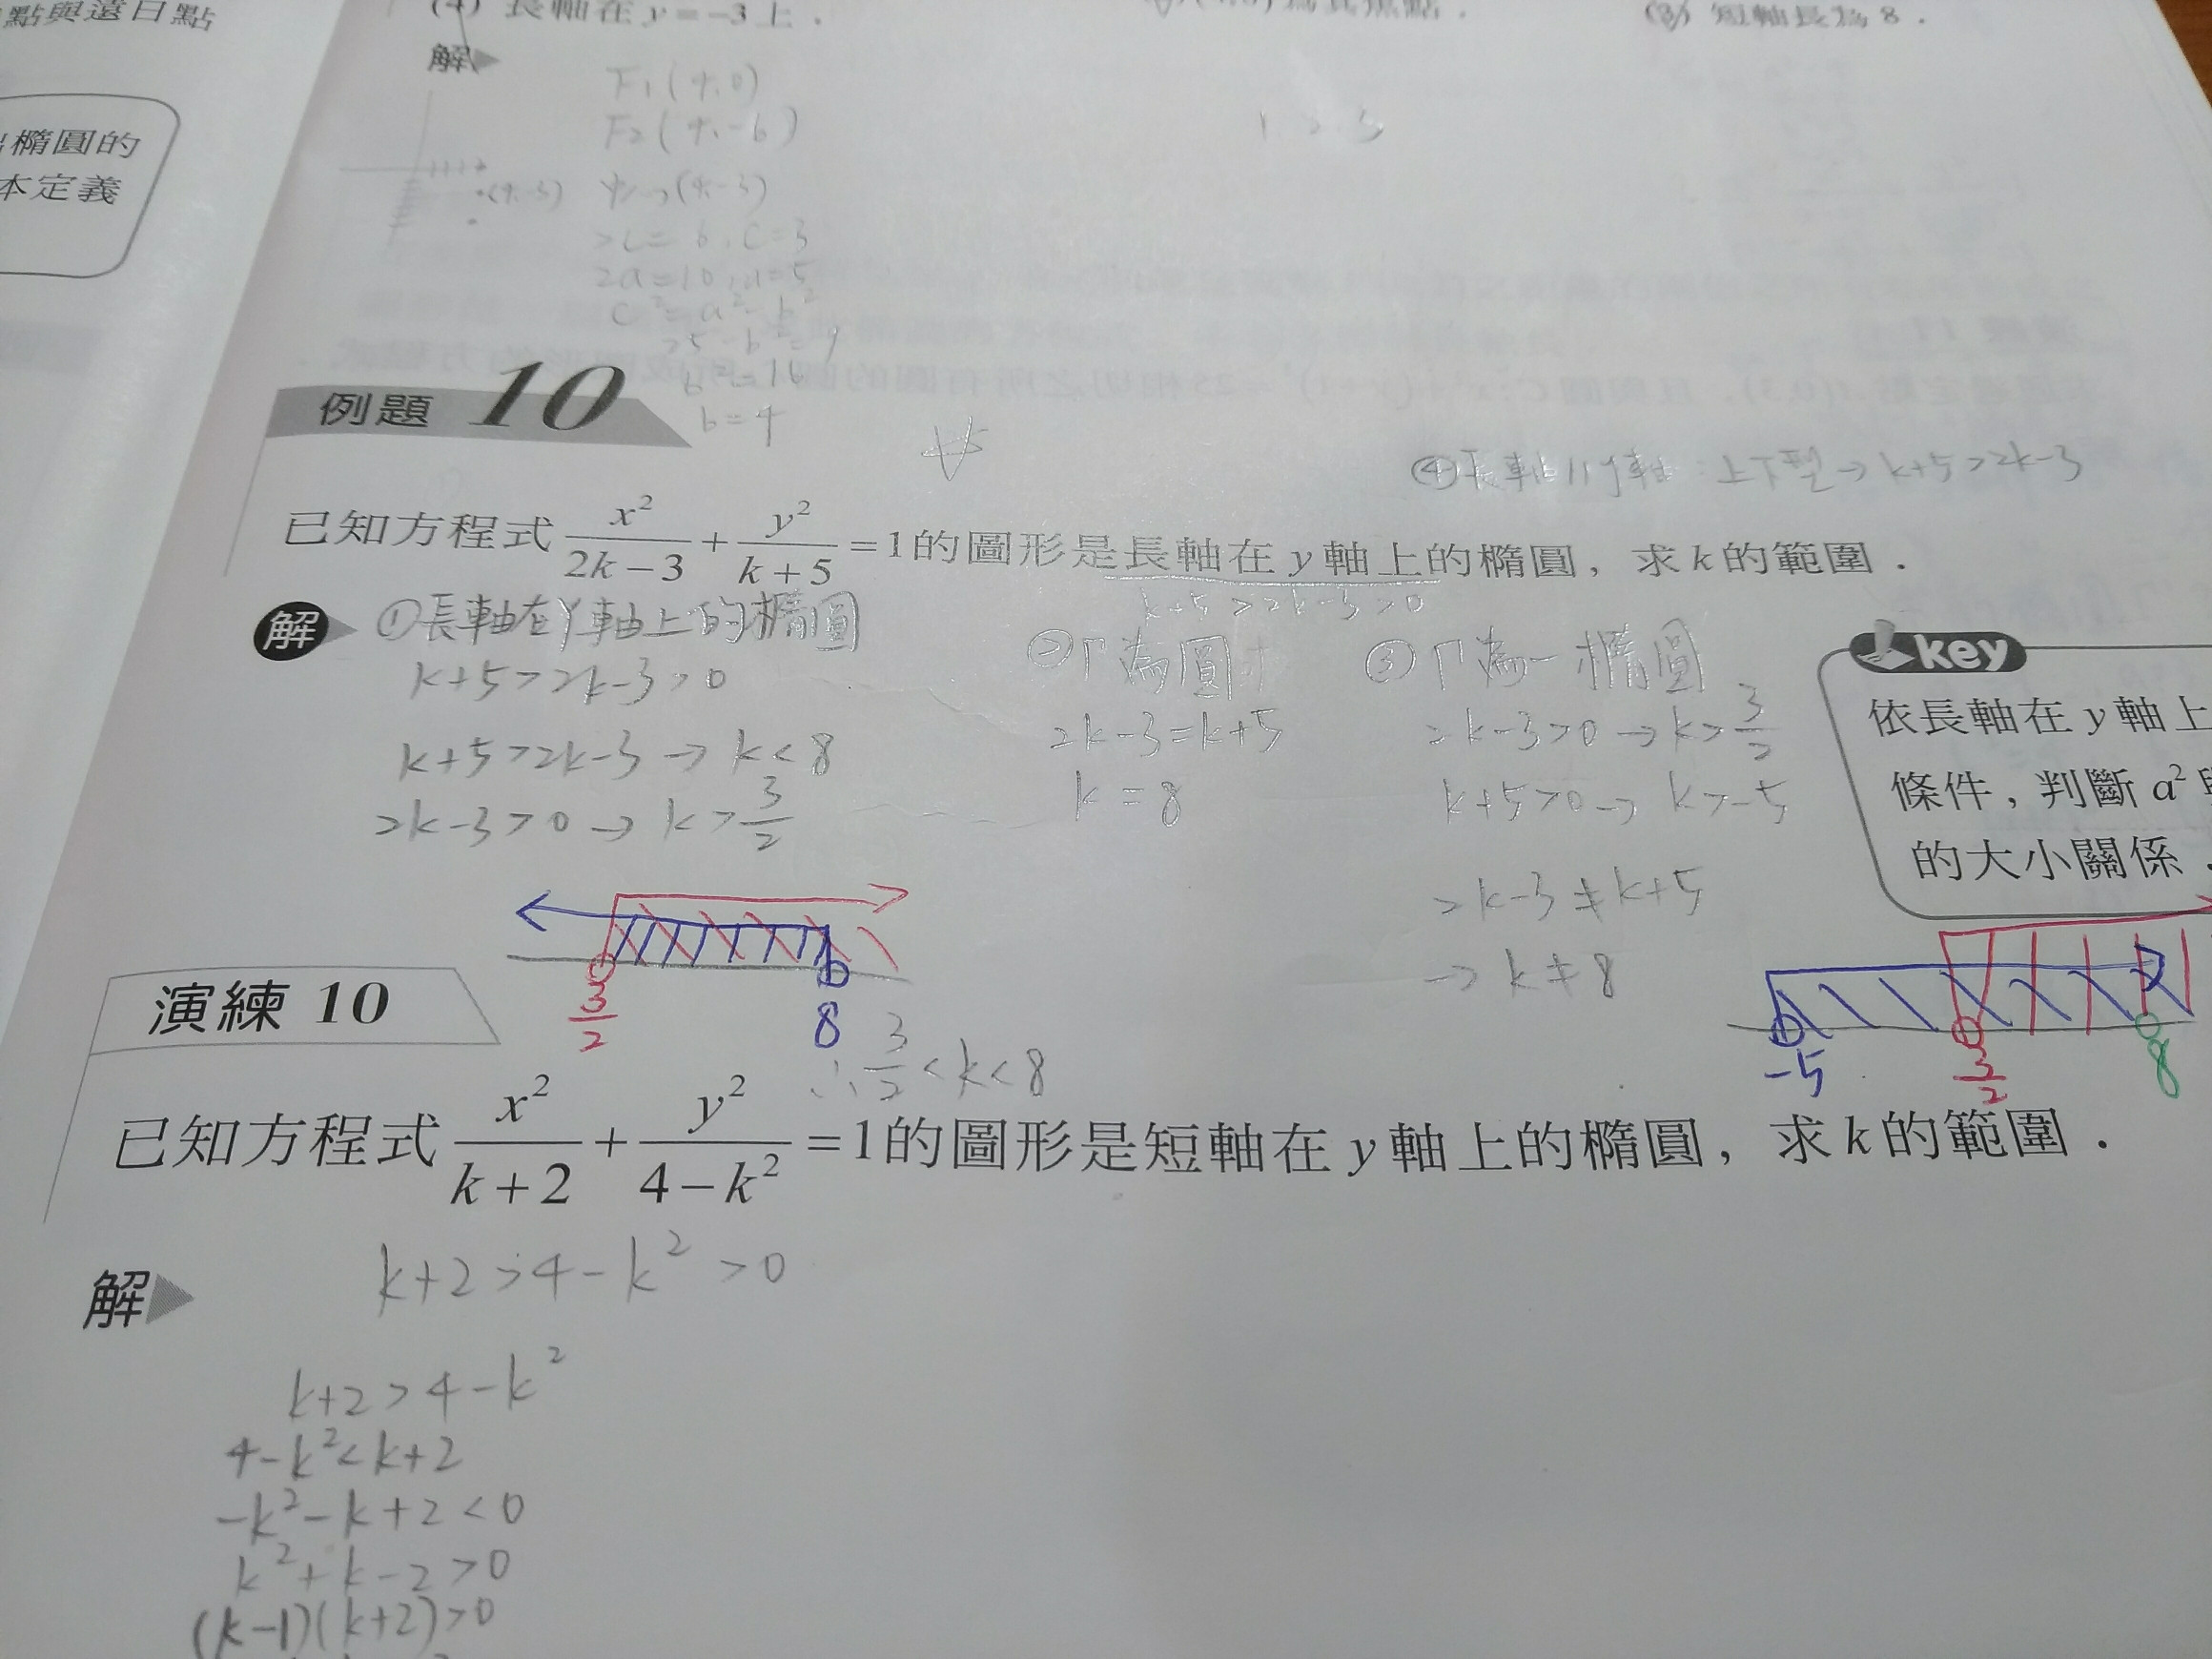 點與遠日點
橢圓的
本定義
長軸在 y = −3 上．
短軸長為 8．
解
F1(4,0)
F2(4,-6)
(4,-3)
中→(4,-3)
2c=6,c=3
2a=10,a=5
c²=a²-b²
25-b²=9
b²=16
b=4
例題 10
④長軸//y軸:上下型→k+5>2k-3
已知方程式 x²/(2k−3) + y²/(k+5) = 1的圖形是長軸在 y 軸上的橢圓，求 k 的範圍．
k+5>2k-3>0
解
①長軸在Y軸上的橢圓
k+5>2k-3>0
k+5>2k-3→k<8
2k-3>0→k>3/2
3/2
8
∴3/2<k<8
②Γ為圓
2k-3=k+5
k=8
③Γ為一橢圓
2k-3>0→k>3/2
k+5>0→k>-5
2k-3≠k+5
→k≠8
-5
3/2
8
key
依長軸在 y 軸上
條件，判斷 a²與
的大小關係．
演練 10
已知方程式 x²/(k+2) + y²/(4−k²) = 1的圖形是短軸在 y 軸上的橢圓，求 k 的範圍．
解
k+2>4-k²>0
k+2>4-k²
4-k²<k+2
-k²-k+2<0
k²+k-2>0
(k-1)(k+2)>0